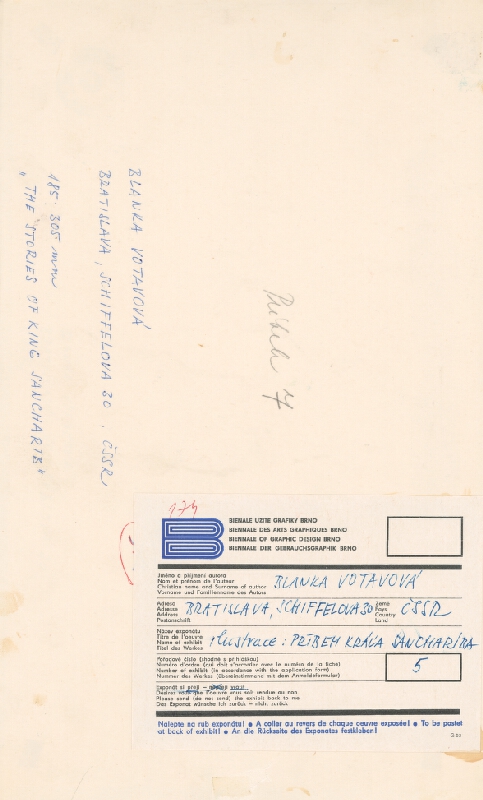 BLANKA VOTAVOVÁ
BRATISLAVA, SCHIFFELOVA 20, ČSSR,
185 . 305 mm
„THE STORIES OF KING SANCHARIB"
Príbeh 7
174
BIENALE UŽITÉ GRAFIKY BRNO
BIENNALE DES ARTS GRAPHIQUES BRNO
BIENNALE OF GRAPHIC DESIGN BRNO
BIENNALE DER GEBRAUCHSGRAPHIK BRNO
Jméno a příjmení autora
Nom et prénom de l'auteur
Christian name and Surname of author
Vorname und Familienname des Autors
BLANKA VOTAVOVÁ
Adresa
Adresse
Address
Postanschrift
BRATISLAVA, SCHIFFELOVA 30
Země
Pays
Country
Land
ČSSR
Název exponátu
Titre de l'oeuvre
Name of exhibit
Titel des Werkes
Ilustrace: PRÍBEH KRÁĽA SANCHARIBA
Pořadové číslo (shodné s přihláškou)
Numéro d'ordre (qui doit s'accorder avec le numéro de la fiche)
Number of exhibit (in accordance with the application form)
Nummer des Werkes (übereinstimmend mit dem Anmeldeformular)
5
Exponát si přeji – nepřeji vrátit
Désirez que l'oeuvre vous soit rendue ou non
Please send (do not send) the exhibit back to me
Das Exponat wünsche ich zurück – nicht zurück
Nalepte na rub exponátu! ● A coller au revers de chaque oeuvre exposée! ● To be pasted
at back of exhibit! ● An die Rückseite des Exponates festkleben!